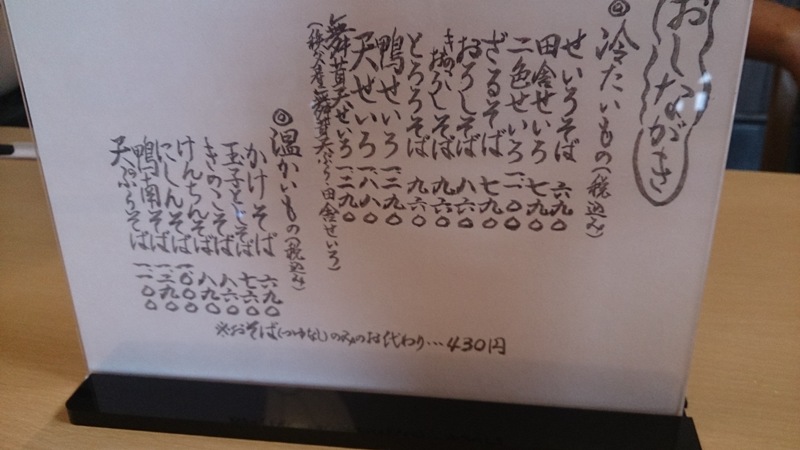 おしながき
◎冷たいもの(税込み)
せいろそば 六九〇
田舎せいろ 七九〇
二色せいろ
ざるそば 七九〇
おろしそば 八六〇
きのこおろしそば 九六〇
とろろそば 九六〇
鴨せいろ 一三九〇
天せいろ 一一八〇
舞茸天せいろ 一三九〇
(秩父産舞茸天ぷら・田舎せいろ)
◎温かいもの(税込み)
かけそば 六九〇
玉子とじそば 七六〇
きのこそば 八六〇
けんちんそば 八九〇
にしんそば 一〇〇〇
鴨南そば 一三九〇
天ぷらそば 一二〇〇
※おそば(つゆなし)のみのお代わり…430円